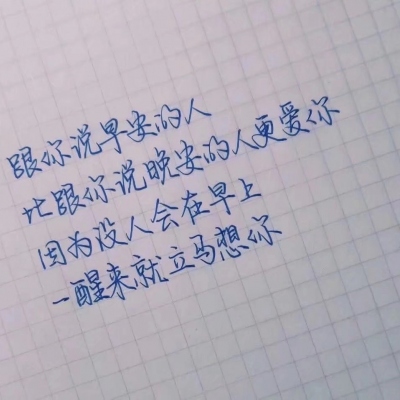 跟你说早安的人
比跟你说晚安的人更爱你
因为没人会在早上
一醒来就立马想你